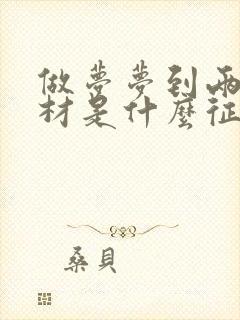 做夢夢到兩
材是什麼征
桑貝